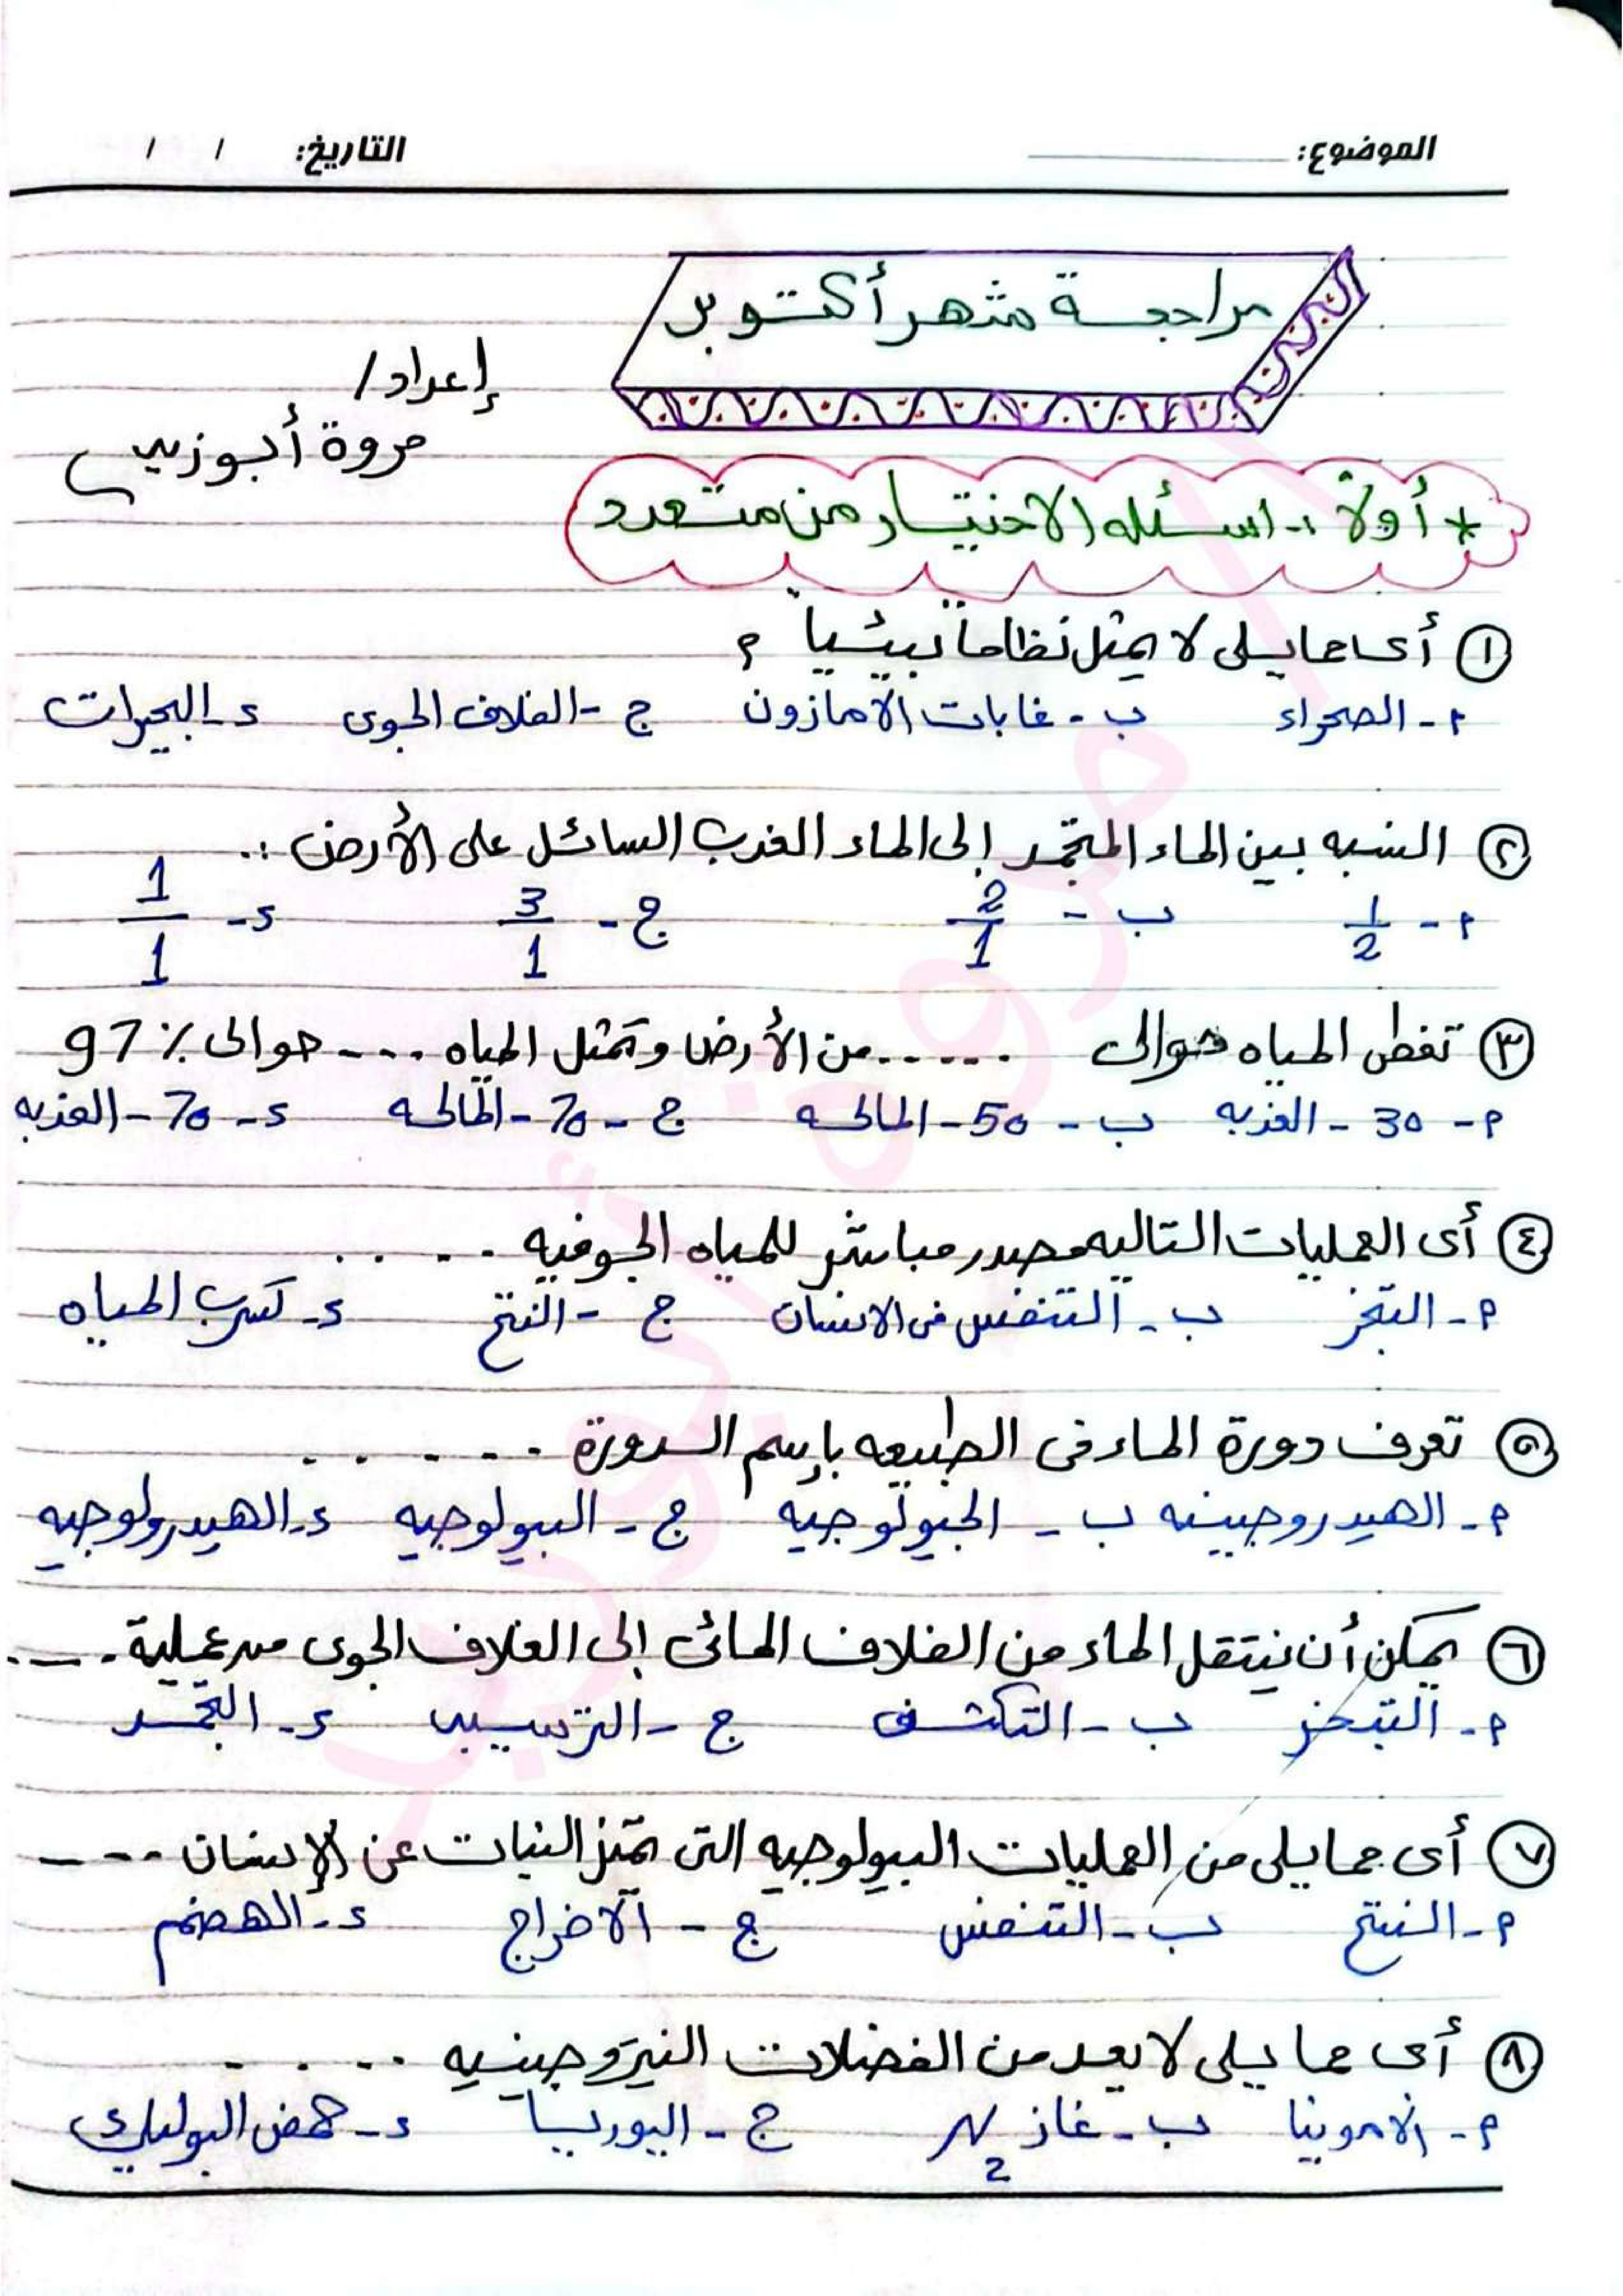 الموضوع: التاريخ: / /
مراجعة شهر أكتوبر
إعداد /
مروة أبوزيد
* أولاً :- اسئله الاختيار من متعدد
① أى مما يلى لا يمثل نظاماً بيئياً ؟
م - الصحراء ب - غابات الأمازون ج - الغلاف الجوى د - البحيرات
② النسبه بين الماء المتجمد إلى الماء العذب السائل على الأرض :.
م - 1/2 ب - 2/1 ج - 3/1 د - 1/1
③ تغطى المياه حوالى ...... من الأرض وتمثل المياه .... حوالى 97٪
م - 30 - العذبه ب - 50 - المالحه ج - 70 - المالحه د - 70 - العذبه
④ أى العمليات التاليه مصدر مباشر للمياه الجوفيه ......
م - التبخر ب - التنفس فى الانسان ج - النتح د - تسرب المياه
⑤ تعرف دورة الماء فى الطبيعه بإسم الدورة ......
م - الهيدروجينيه ب - الجيولوجيه ج - البيولوجيه د - الهيدرولوجيه
⑥ يمكن أن ينتقل الماء من الغلاف المائى إلى الغلاف الجوى من عملية ....
م - التبخر ب - التكثف ج - الترسيب د - التجمد
⑦ أى مما يلى من العمليات البيولوجيه التى تميز النبات عن الإنسان ----
م - النتح ب - التنفس ج - الاخراج د - الهضم
⑧ أى مما يلى لا يعد من الفضلات النيتروجينيه ......
م - الأمونيا ب - غاز N₂ ج - اليوريا د - حمض البوليك